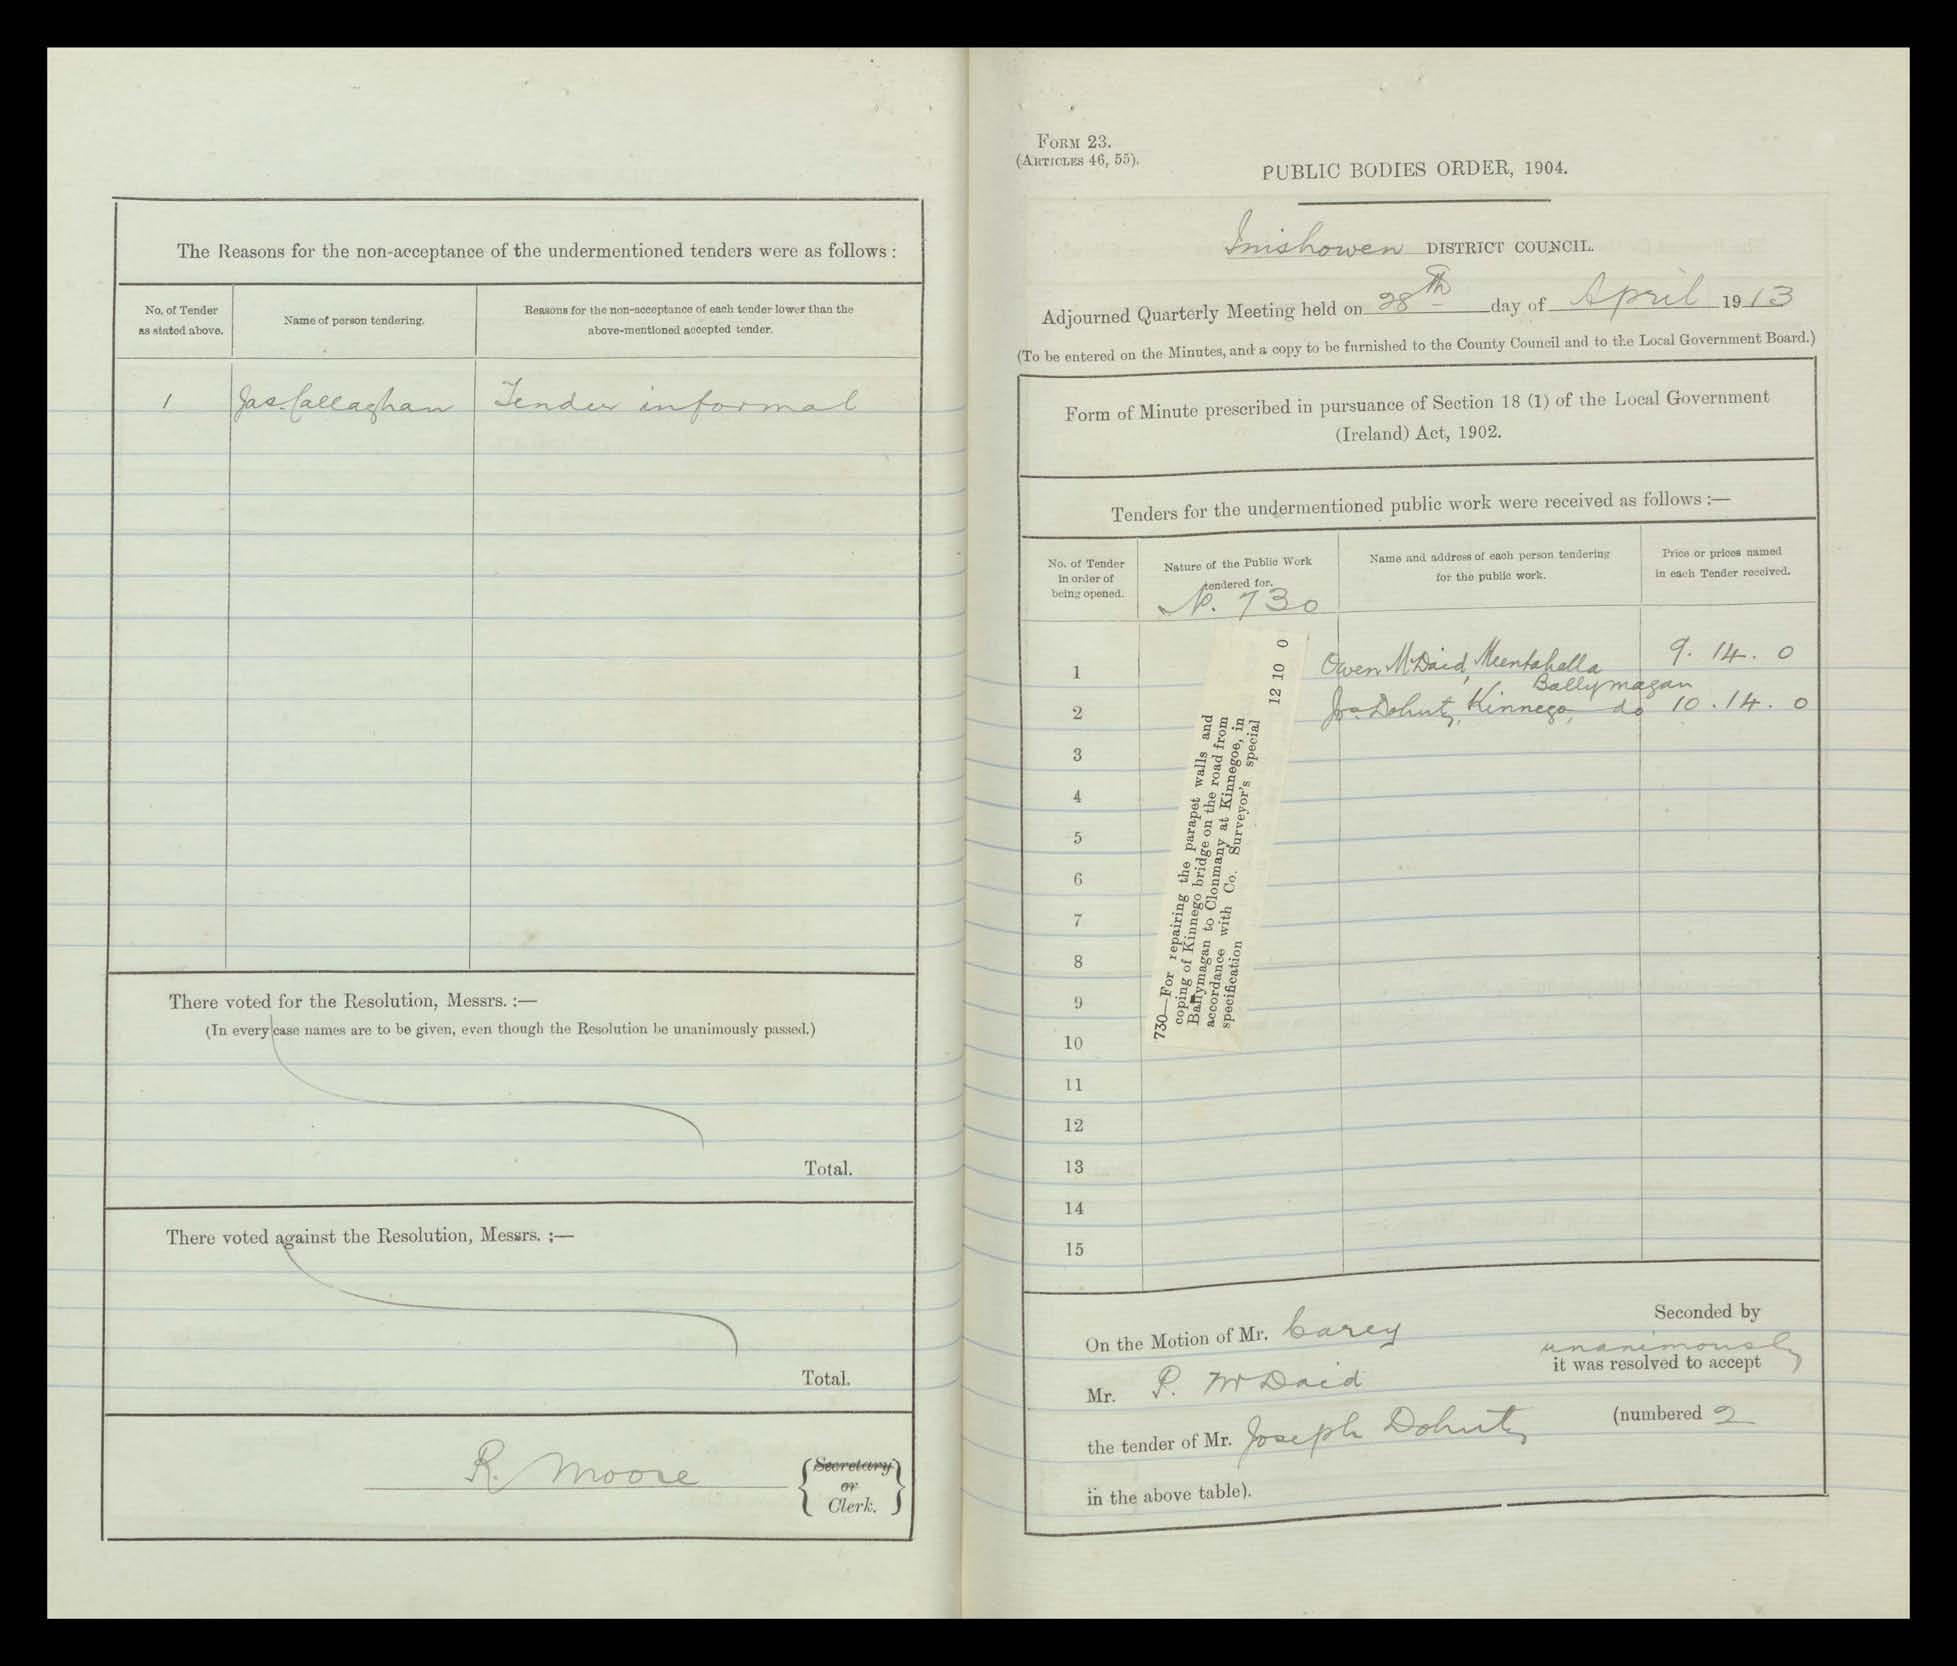 The Reasons for the non-acceptance of the undermentioned tenders were as follows :
No. of Tender as stated above.
Name of person tendering.
Reasons for the non-acceptance of each tender lower than the above-mentioned accepted tender.
1 Jas. Callaghan Tender informal
There voted for the Resolution, Messrs. :—
(In every case names are to be given, even though the Resolution be unanimously passed.)
Total.
There voted against the Resolution, Messrs. :—
Total.
R. Moore
Secretary
or
Clerk.
Form 23.
(Articles 46, 55).
PUBLIC BODIES ORDER, 1904.
Inishowen DISTRICT COUNCIL.
Adjourned Quarterly Meeting held on 28th day of April 1913
(To be entered on the Minutes, and a copy to be furnished to the County Council and to the Local Government Board.)
Form of Minute prescribed in pursuance of Section 18 (1) of the Local Government
(Ireland) Act, 1902.
Tenders for the undermentioned public work were received as follows :—
No. of Tender in order of being opened.
Nature of the Public Work tendered for.
No. 730
Name and address of each person tendering for the public work.
Price or prices named in each Tender received.
730—For repairing the parapet walls and
coping of Kinnego bridge on the road from
Ballymagan to Clonmany at Kinnegoe, in
accordance with Co. Surveyor's special
specification 12 10 0
1 Owen McDaid, Meentahalla 9. 14. 0
Ballymagan
2 Jos. Dohrty, Kinnego, do 10. 14. 0
3
4
5
6
7
8
9
10
11
12
13
14
15
On the Motion of Mr. Carey Seconded by
unanimously
Mr. P. McDaid it was resolved to accept
the tender of Mr. Joseph Dohrty (numbered 2
in the above table).